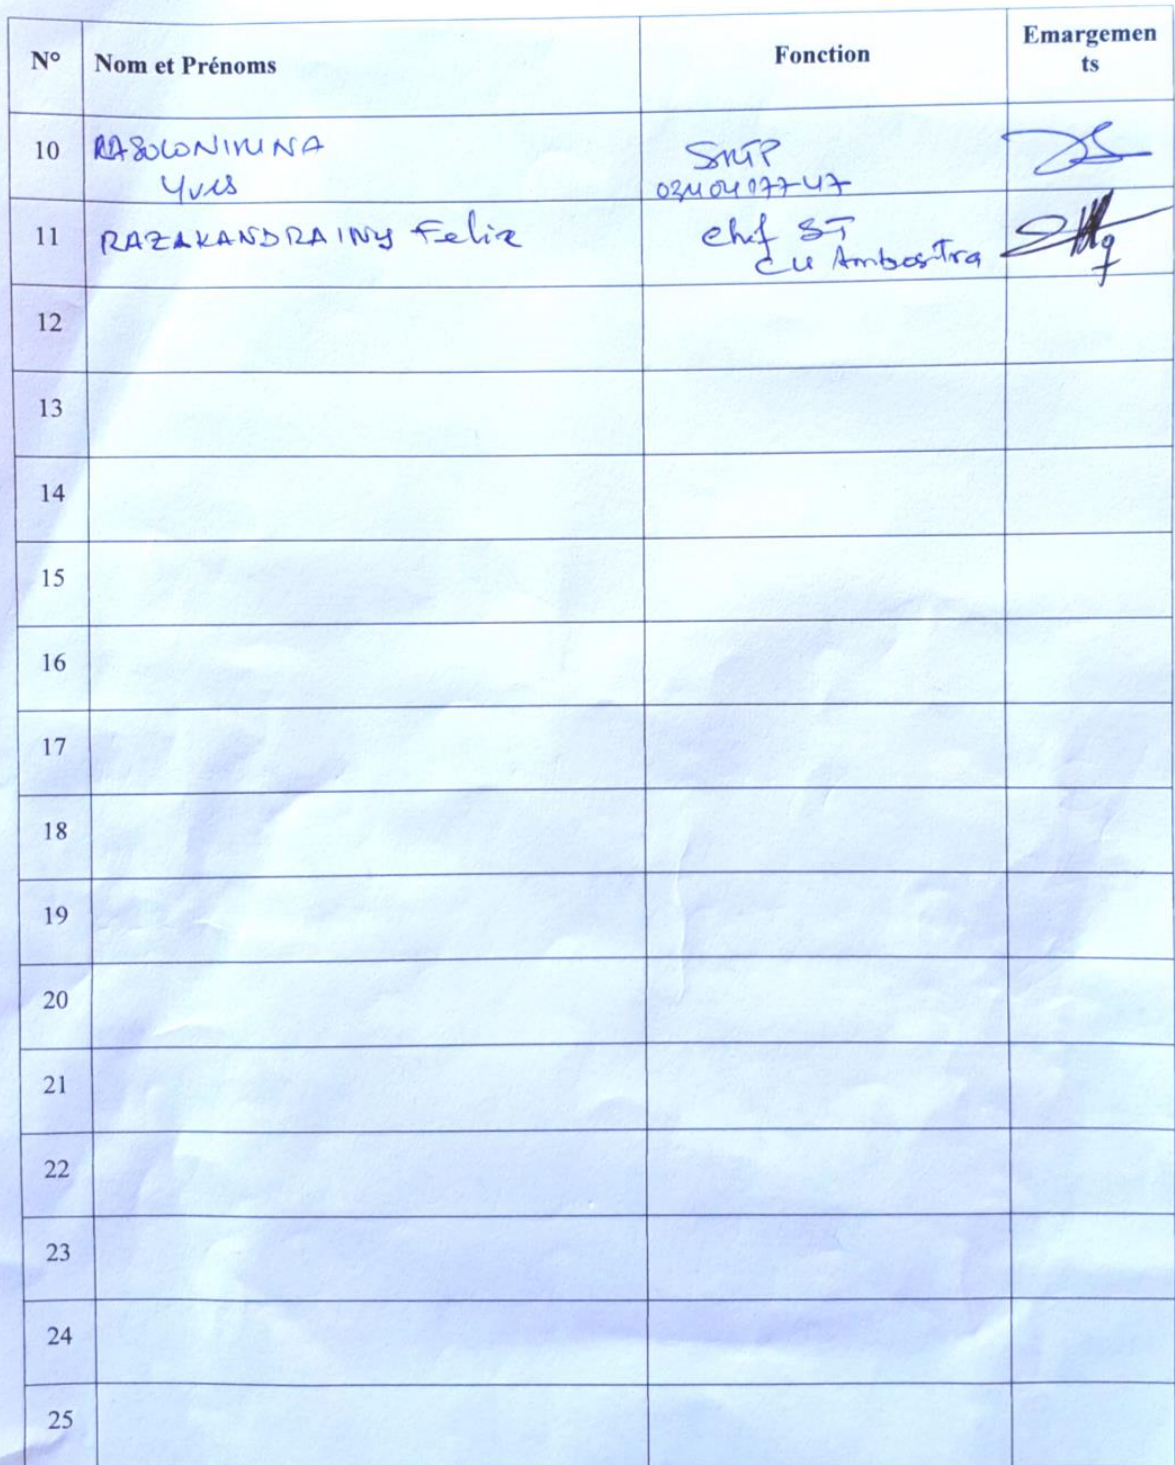 N° Nom et Prénoms Fonction Emargemen
ts
10 RASOLONIRINA
Yves
034 04 077 47
11 RAZAKANDRAINY Felix Chef ST
CU Ambositra
12
13
14
15
16
17
18
19
20
21
22
23
24
25